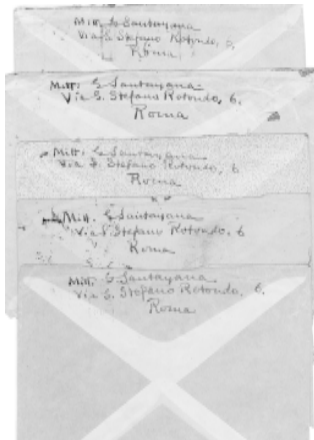 Mitt. G. Santayana
Via S. Stefano Rotondo, 6.
Roma
Mitt. G. Santayana
Via S. Stefano Rotondo, 6.
Roma
Mitt. G. Santayana
Via S. Stefano Rotondo, 6
Roma
Mitt. G. Santayana
Via S. Stefano Rotondo, 6
Roma
Mitt. G. Santayana
Via S. Stefano Rotondo, 6.
Roma